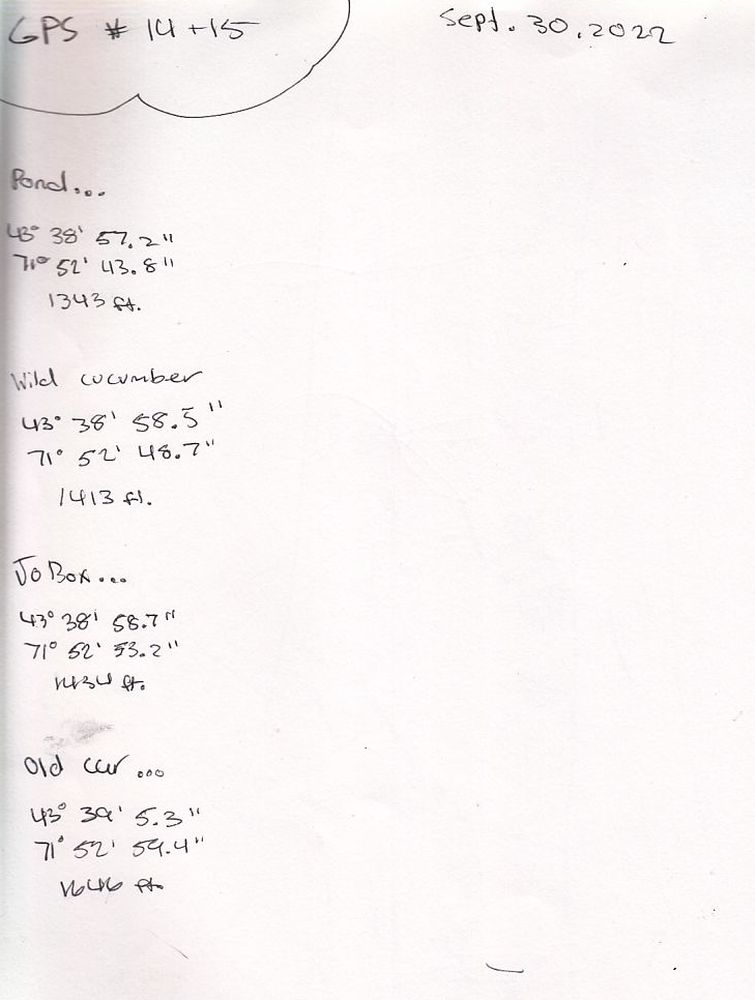 GPS # 14 + 15
Sept. 30. 2022
Pond...
43° 38' 57.2"
71° 52' 43.8"
1343 ft.
Wild cucumber
43° 38' 58.5"
71° 52' 48.7"
1413 ft.
Jo Box...
43° 38' 58.7"
71° 52' 53.2"
1434 ft.
Old car...
43° 39' 5.3"
71° 52' 59.4"
1646 ft.